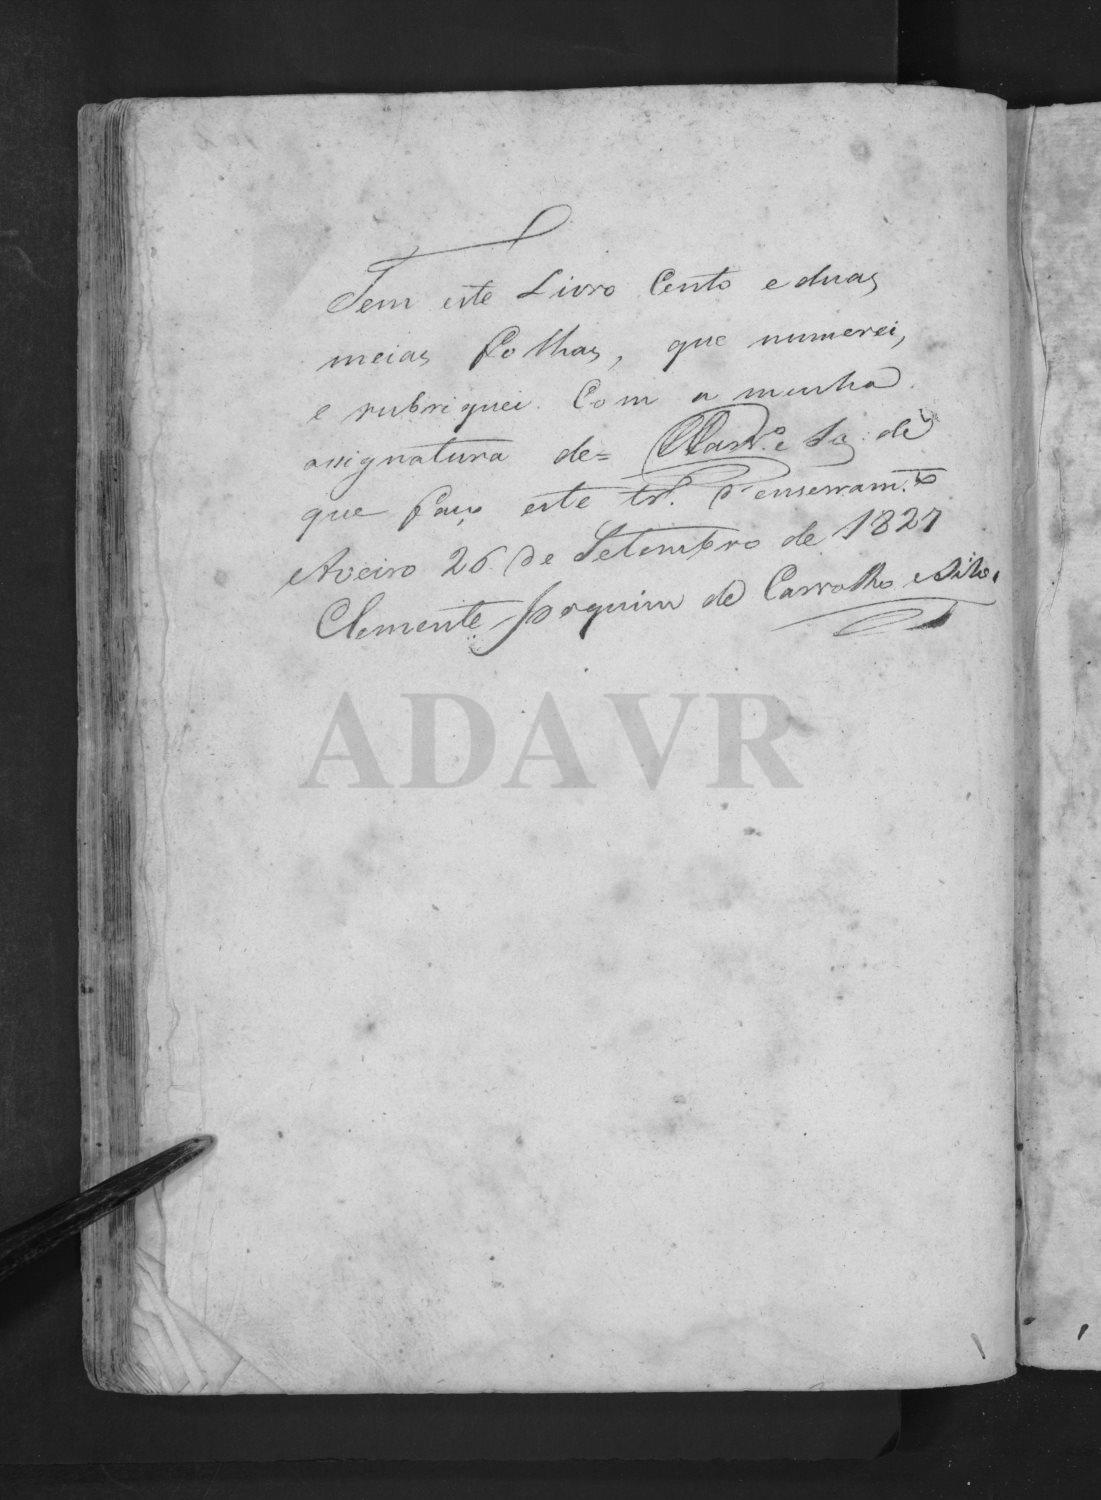 Tem este Livro Cento e duas
meias folhas, que numerei,
e rubriquei. Com a minha
assignatura de= Carv.º e Sª de
que faço este tr.º d'enserram.to
Aveiro 26 de Setembro de 1827
Clemente Joaquim de Carvalho e Silva
ADAVR